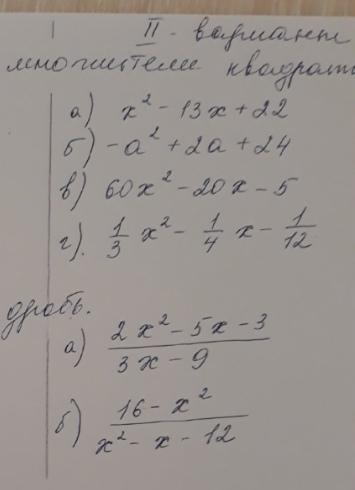 II - вариант
множители квадратн
а) x² - 13x + 22
б) -a² + 2a + 24
в) 60x² - 20x - 5
г). 1/3 x² - 1/4 x - 1/12
дробь.
а) (2x² - 5x - 3)/(3x - 9)
б) (16 - x²)/(x² - x - 12)